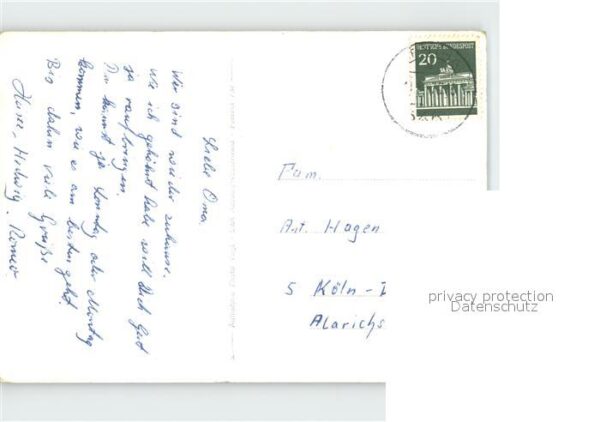 Liebe Oma,
Wir sind wieder zuhause.
Wie ich gehört habe will Dich Gerd
ja raufbringen.
Du kannst ja Sonntag oder Montag
kommen, wie es am besten geht.
Bis dahin viele Grüße
Hedwig, Romeo
DEUTSCHE BUNDESPOST
20
Fam.
Ant. Hagen
5 Köln -
Alarichs
privacy protection
Datenschutz